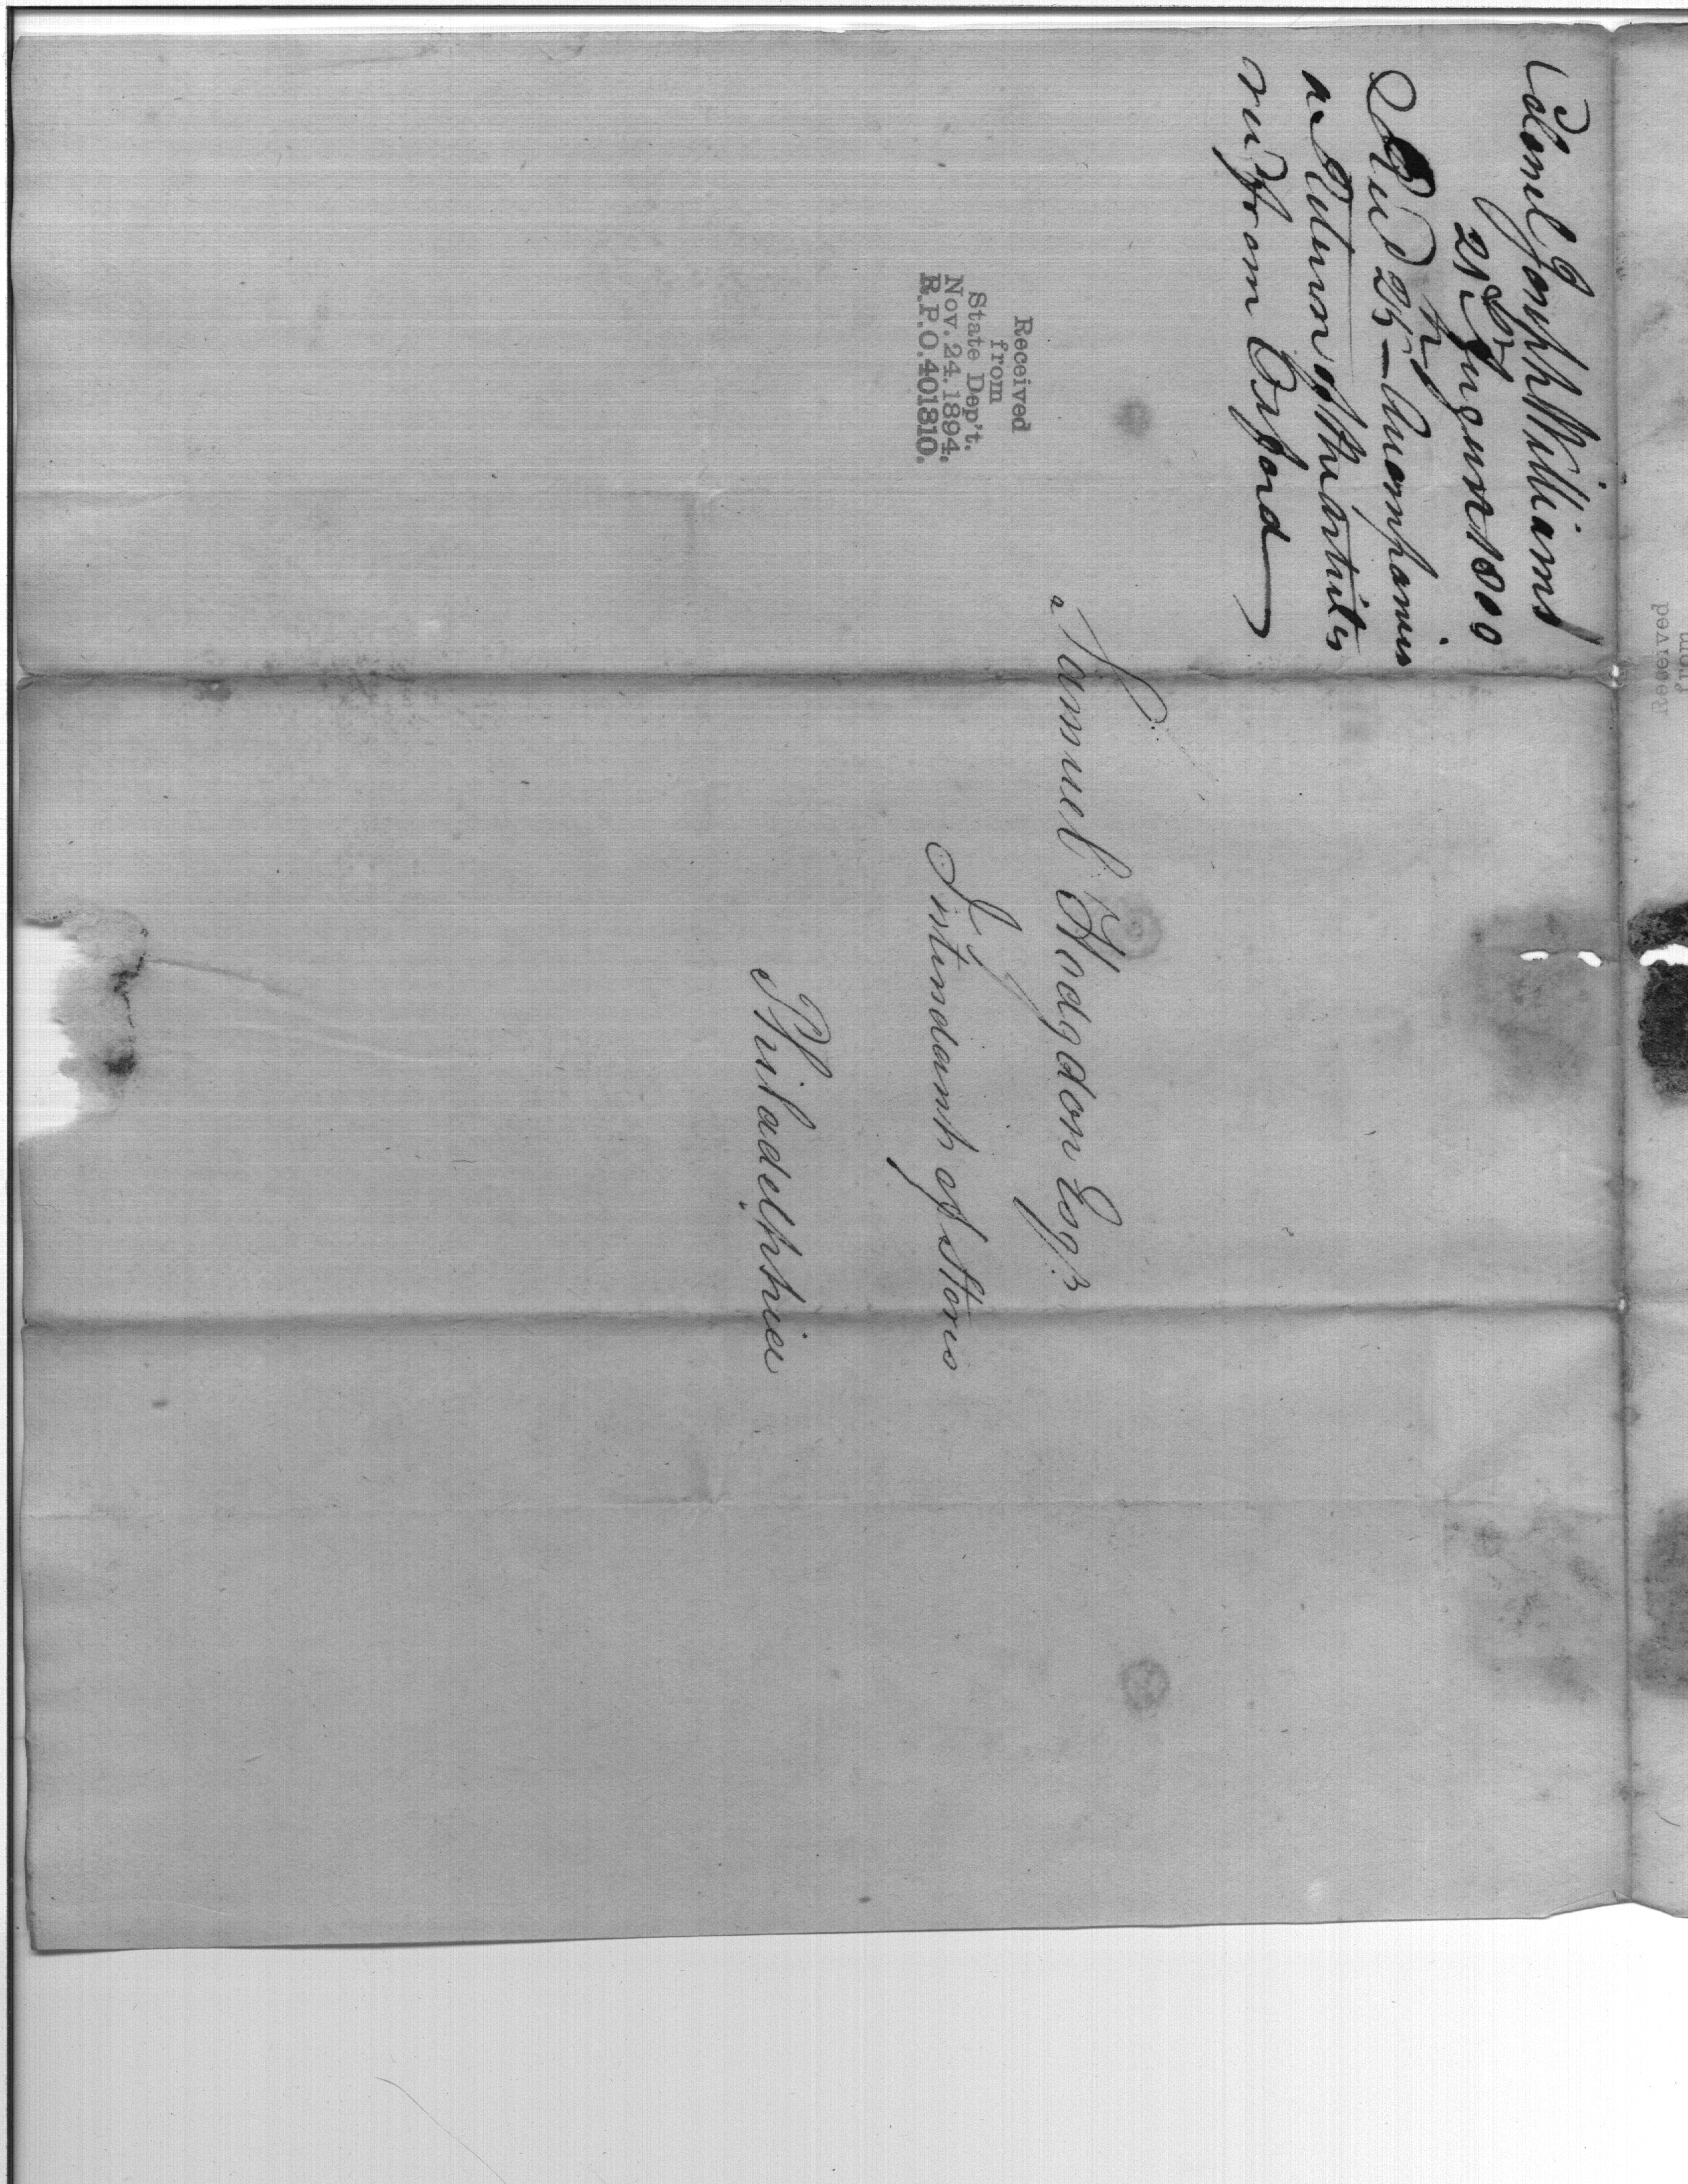 Colonel Joseph Williams
21st August 1800
Recd 25th Accompanies
a Return of the articles
recd from Oxford
Received
from
State Dep't.
Nov. 24. 1894.
R.P.O. 401810.
Samuel Hodgdon Esqr
Intendant of Stores
Philadelphia
Received
from